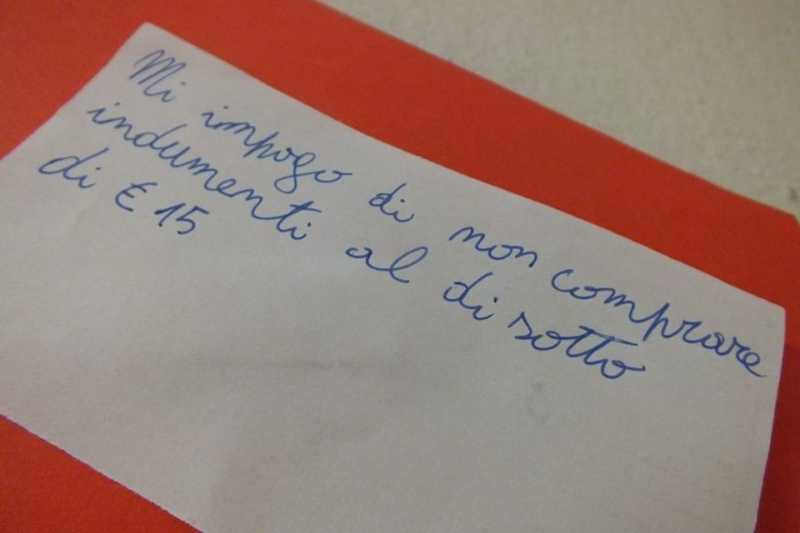 Mi impogo di non comprare
indumenti al di sotto
di € 15